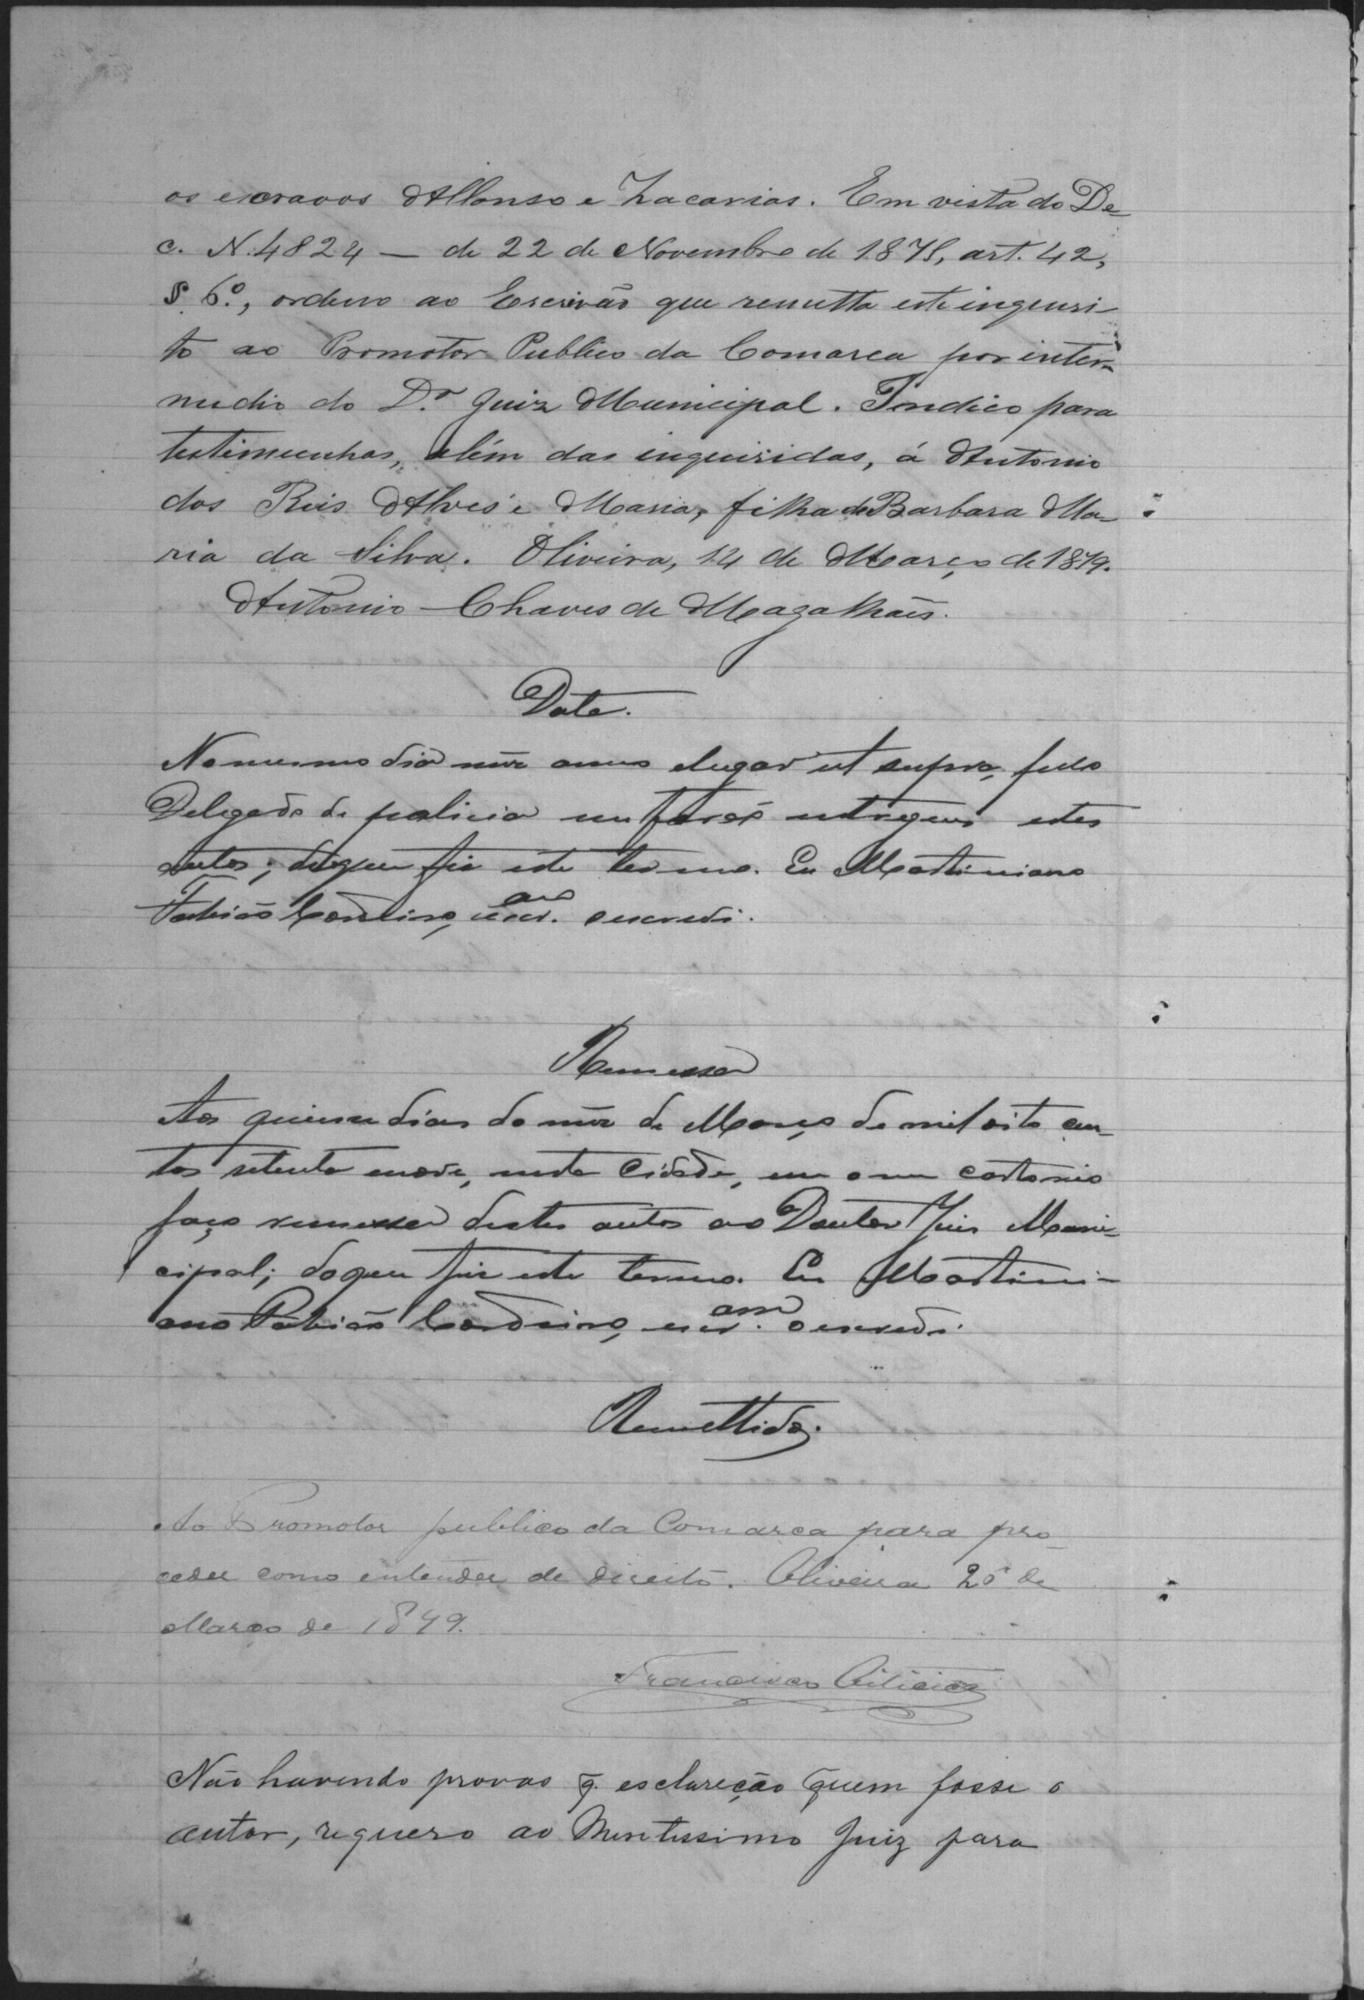 os escravos Affonso e Zacarias. Em vista do De-
c. N. 4824 — de 22 de Novembro de 1871, art. 42,
§ 6.º, ordeno ao Escrivão que remetta este inqueri-
to ao Promotor Publico da Comarca por inter-
medio do D.r Juiz Municipal. Indico para
testimunhas, além das inqueridas, á Antonio
dos Reis Alves e Maria, filha de Barbara Ma-
ria da Silva. Oliveira, 14 de Março de 1879.
Antonio Chaves de Magalhães.
Data.
No mesmo dia mez anno e lugar ut supra, pelo
Delegado de policia me forão entregues estes
autos; do que fiz este termo. Eu Martiniano
Fabião Cordeiro, escr. o escrevi.
Remessa
Aos quinze dias do mez de Março de mil oito cen-
tos setenta e nove, nesta Cidade, em o meu cartorio
faço remessa destes autos ao Doutor Juis Muni-
cipal; do que fiz este termo. Eu Martini-
ano Fabião Cordeiro, escr. o escrevi.
Remettidos.
Ao Promotor publico da Comarca para pro-
ceder como entender de direito. Oliveira 20 de
Março de 1879.
Francisco
Não havendo provas q. esclareção quem fosse o
autor, requero ao Meritissimo Juiz para